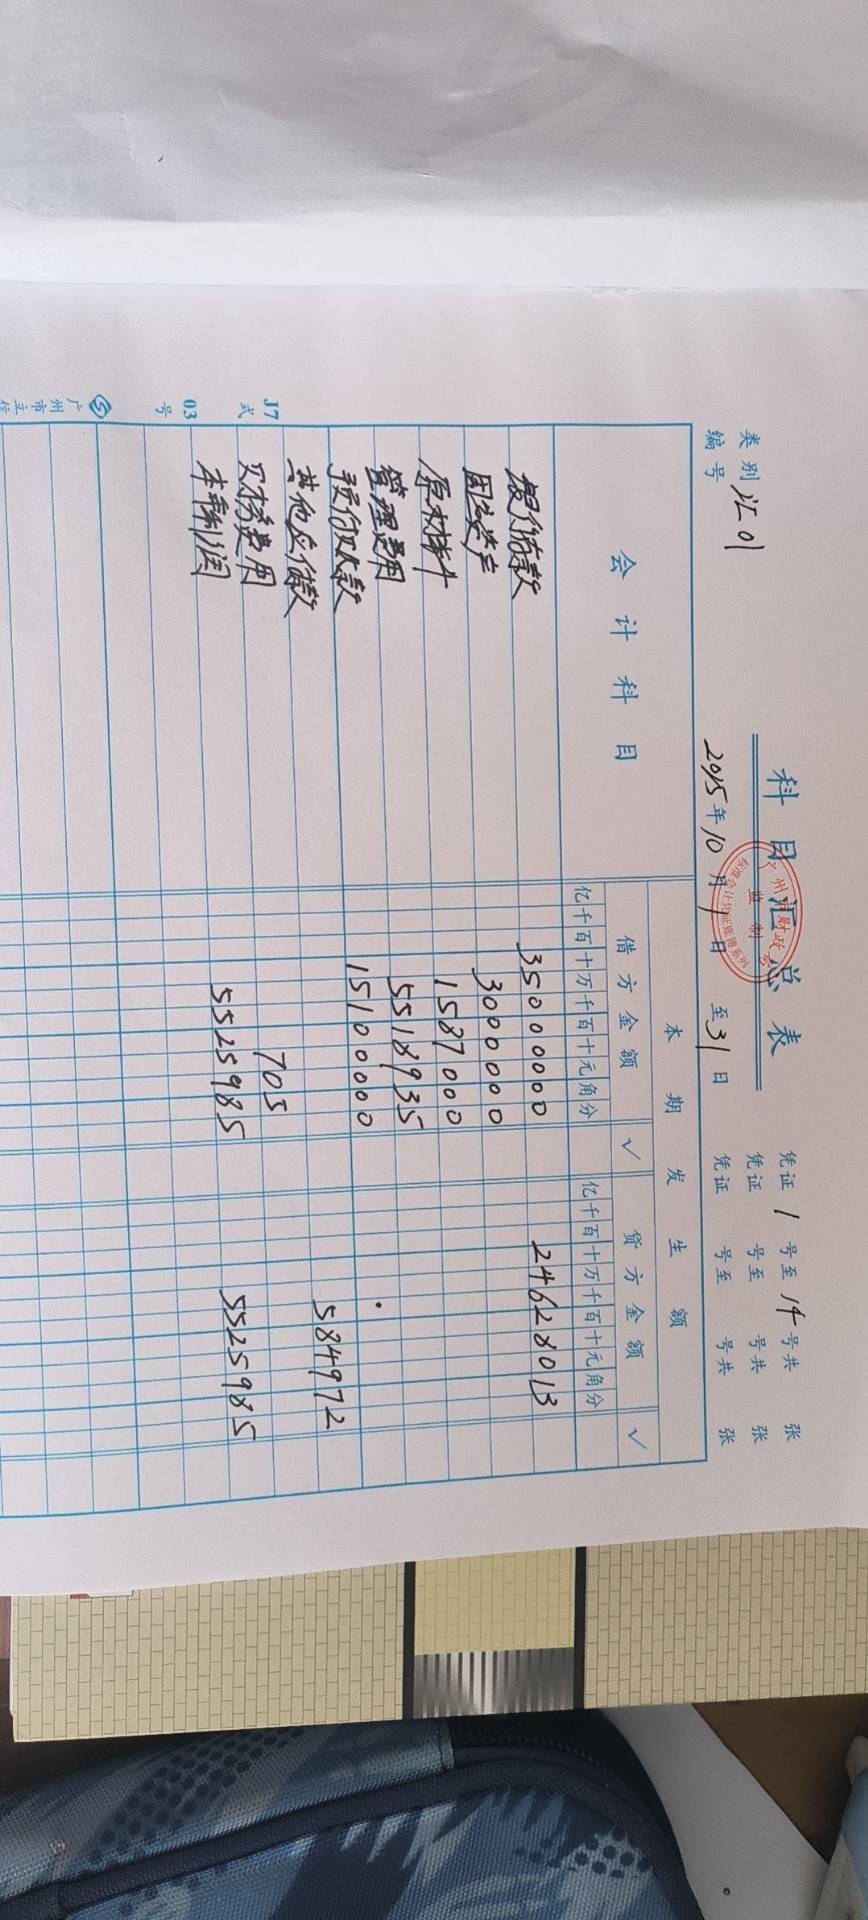 科目汇总表
广州市财政局
监制
类别
编号 汇01
2015年10月1日 至31日
凭证 1 号至 14 号共 张
凭证 号至 号共 张
凭证 号至 号共 张
会计科目
本期发生额
借方金额 √ 贷方金额 √
亿千百十万千百十元角分 亿千百十万千百十元角分
银行存款 35000000 24628013
固定资产 3000000
原材料 1587000
管理费用 5518935
预付账款 15100000
其他应付款 584972
财务费用 705
本年利润 5525985 5525985
J7式
03号
广州市立信